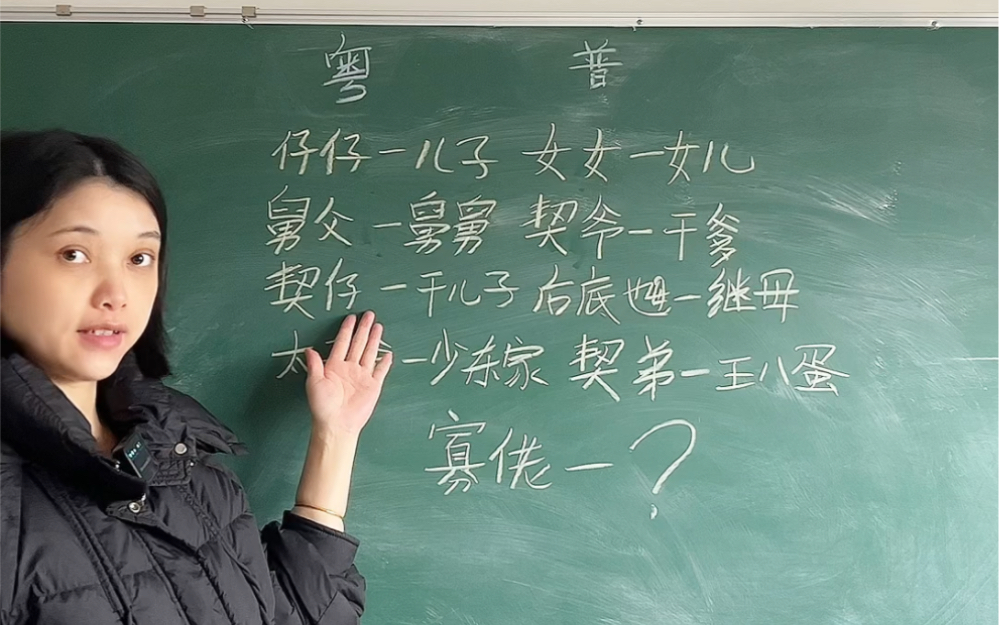 粤 普
仔仔一儿子 女女一女儿
舅父一舅舅 契爷一干爹
契仔一干儿子 后底乸一继母
太 一少东家 契弟一王八蛋
寡佬一?